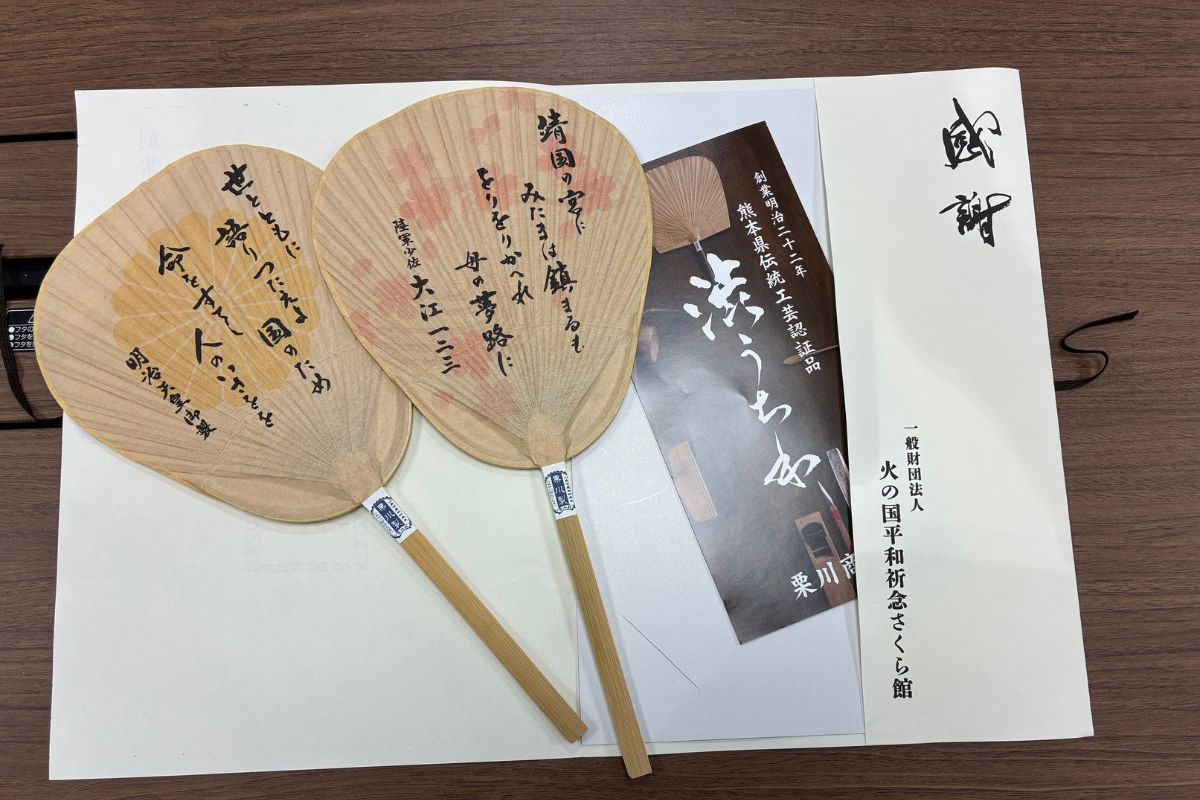 感謝
一般財団法人
火の国平和祈念さくら館
創業明治二十二年
熊本県伝統工芸認証品
渋うちわ
栗川商
靖国の宮に
みたまは鎮まるも
をりをりかへれ
母の夢路に
陸軍少佐 大江一二三
栗川製
世とともに
語りつたへよ
国のため
命をすてし
人のいさをを
明治天皇御製
栗川製
●フタの
●フタを